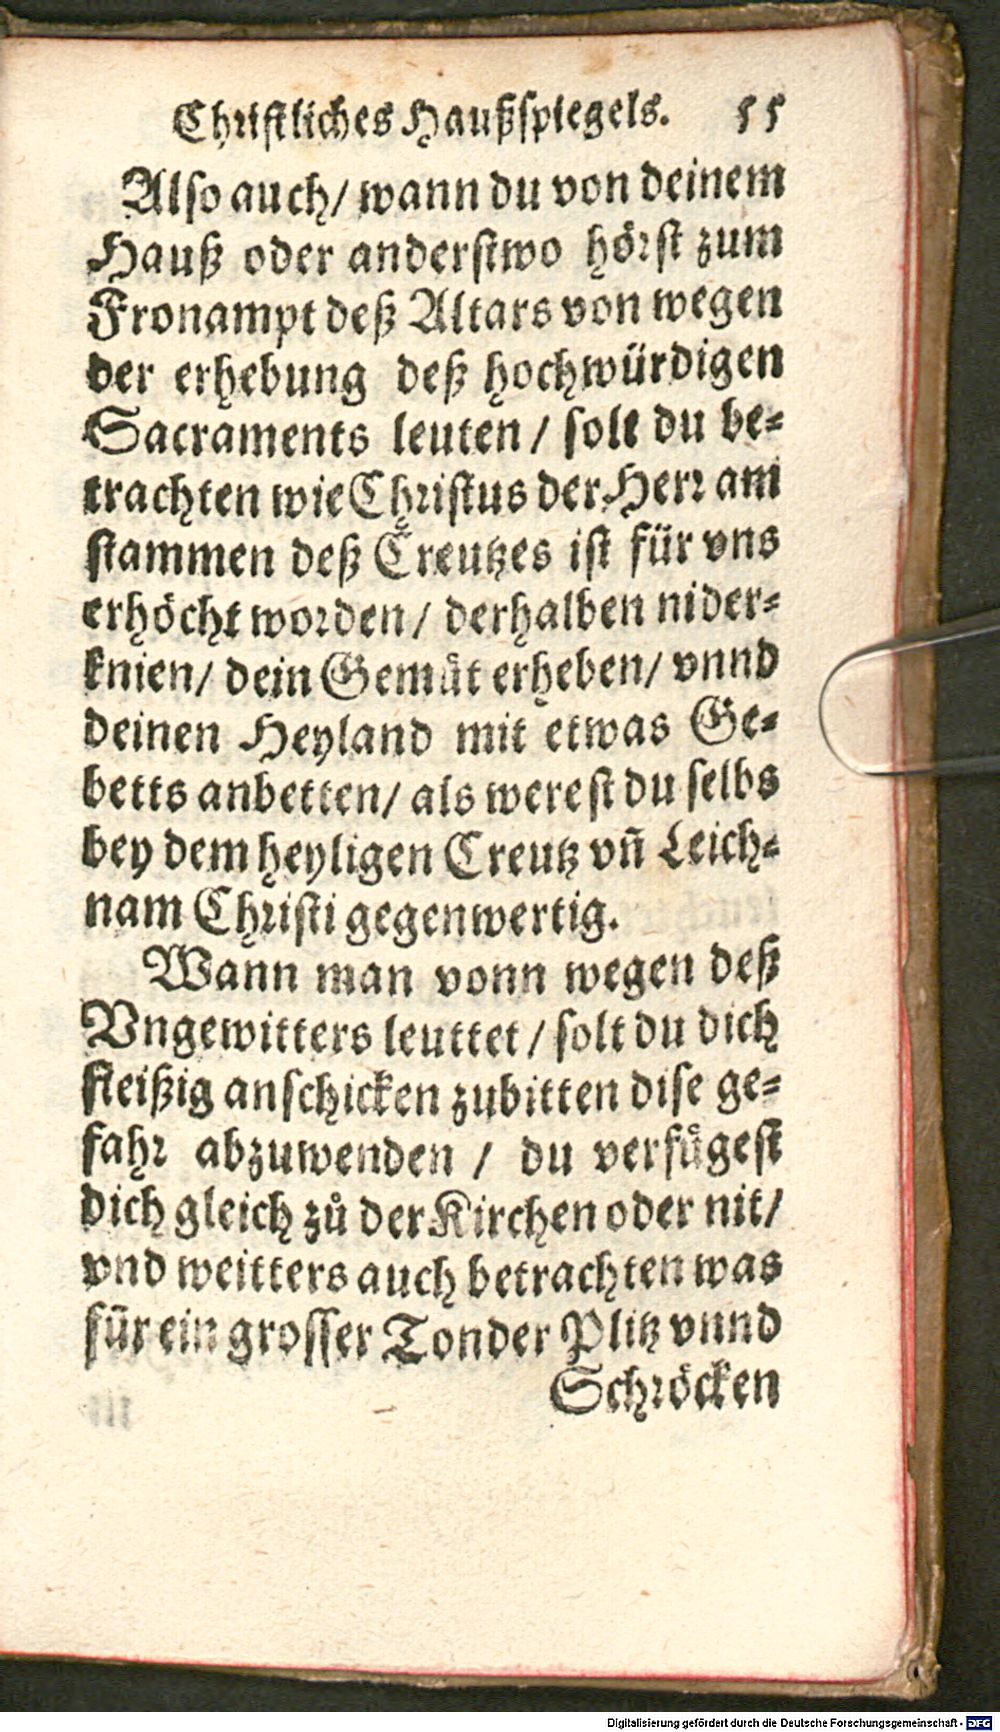 Christliches Haußspiegels. 55
Also auch/ wann du von deinem
Hauß oder anderstwo hörst zum
Fronampt deß Altars von wegen
der erhebung deß hochwürdigen
Sacraments leuten / solt du be-
trachten wie Christus der Herr am
stammen deß Creutzes ist für vns
erhöcht worden / derhalben nider-
knien/ dein Gemüt erheben/ vnnd
deinen Heyland mit etwas Ge-
betts anbetten/ als werest du selbs
bey dem heyligen Creutz vñ Leich-
nam Christi gegenwertig.
Wann man vonn wegen deß
Vngewitters leuttet / solt du dich
fleißig anschicken zubitten dise ge-
fahr abzuwenden / du verfügest
dich gleich zů der Kirchen oder nit/
vnd weitters auch betrachten was
für ein grosser Tonder Plitz vnnd
Schröcken
Digitalisierung gefördert durch die Deutsche Forschungsgemeinschaft - DFG